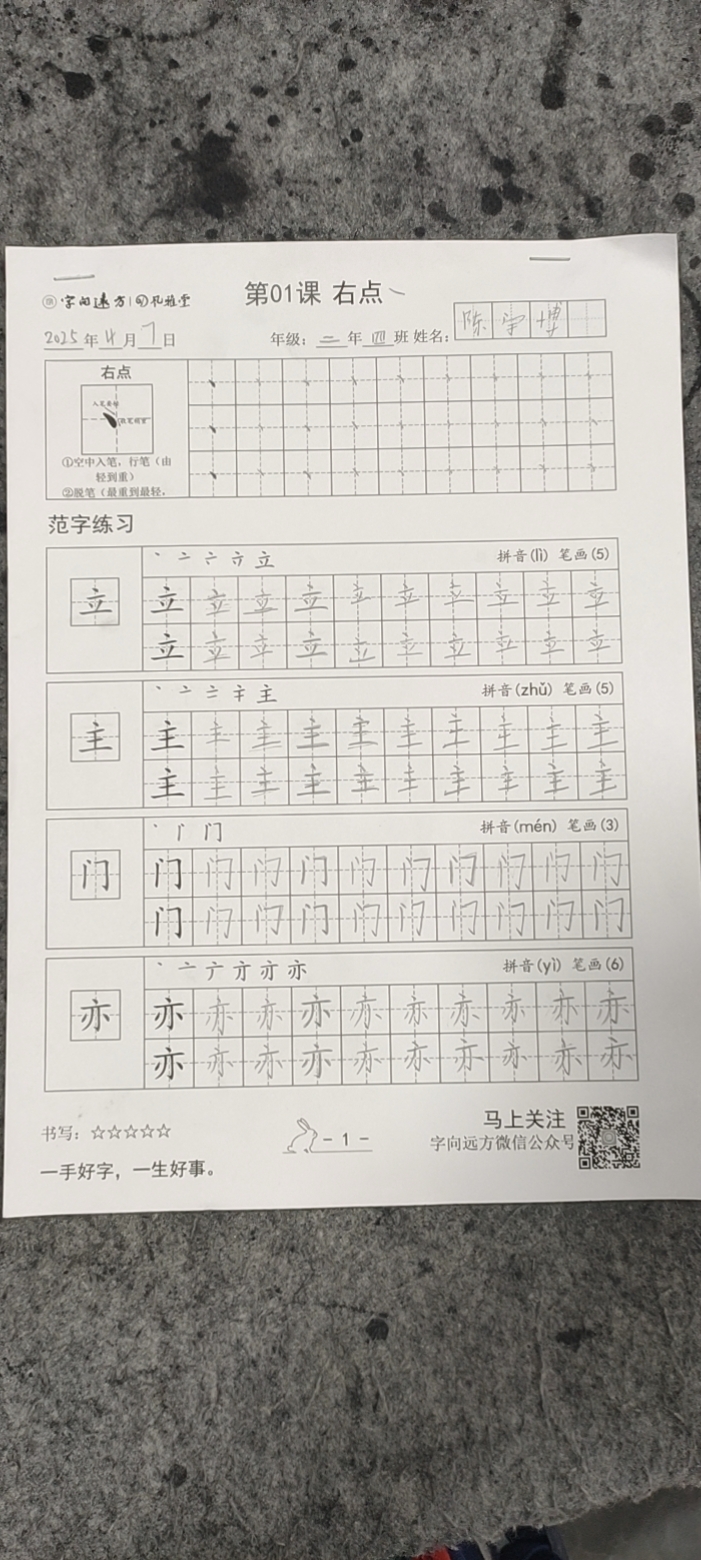 字向远方 | 礼雅堂
第01课 右点
2025年4月7日
年级：二年四班 姓名：陈宇博
右点
①空中入笔，行笔（由
轻到重）
②脱笔（最重到最轻，
范字练习
丶 亠 立
拼音(lì) 笔画(5)
立 立 立 立 立 立 立 立 立 立 立
立 立 立 立 立 立 立 立 立 立
丶 亠 主
拼音(zhǔ) 笔画(5)
主 主 主 主 主 主 主 主 主 主 主
主 主 主 主 主 主 主 主 主 主
丶 门
拼音(mén) 笔画(3)
门 门 门 门 门 门 门 门 门 门 门
门 门 门 门 门 门 门 门 门 门
丶 亠 亦 亦
拼音(yì) 笔画(6)
亦 亦 亦 亦 亦 亦 亦 亦 亦 亦 亦
亦 亦 亦 亦 亦 亦 亦 亦 亦 亦
书写：☆☆☆☆☆
- 1 -
马上关注
字向远方微信公众号
一手好字，一生好事。